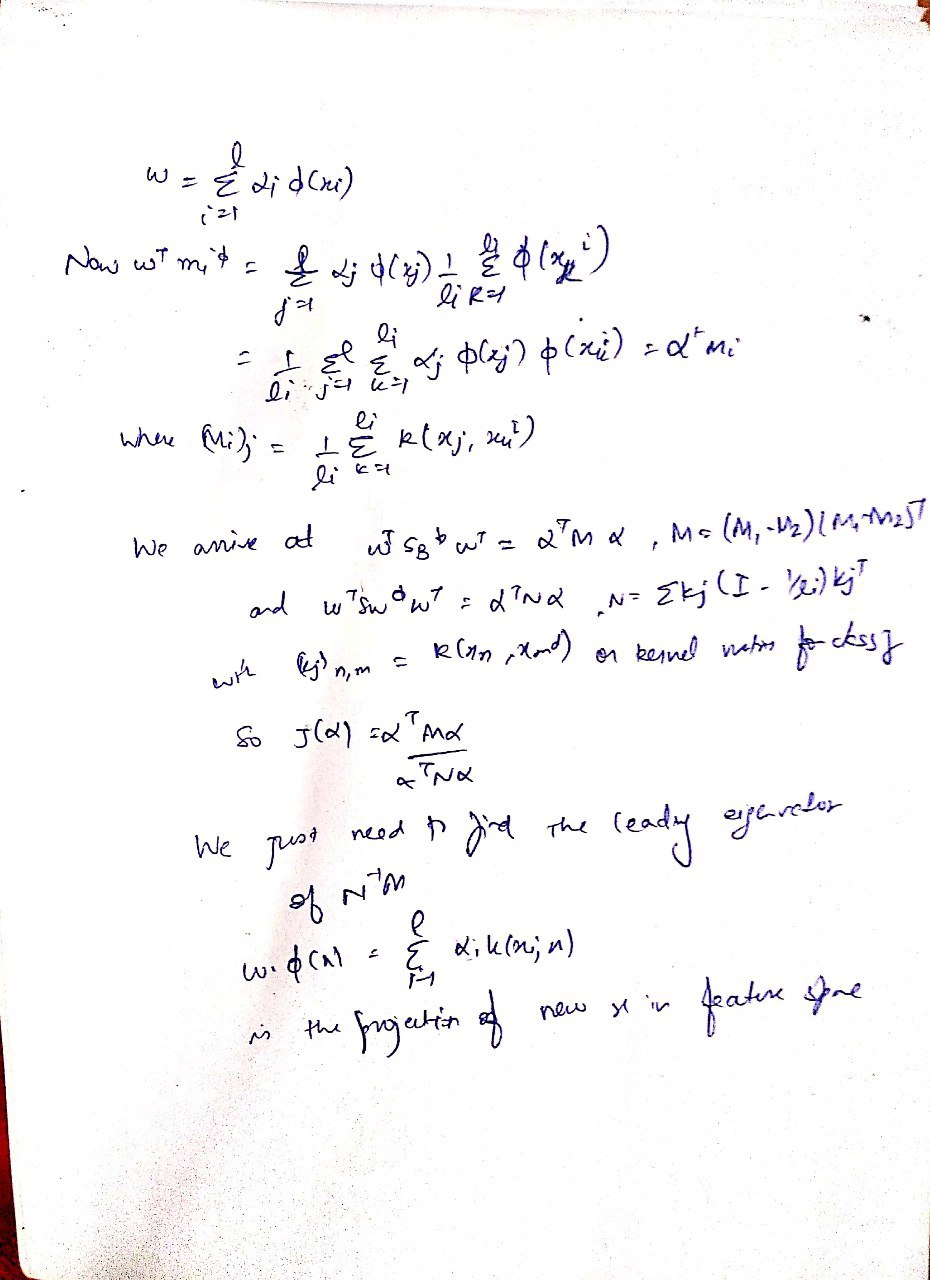 w = Σ_{i=1}^{l} αi ϕ(xi)
Now wᵀ mᵢ^ϕ = Σ_{j=1}^{l} αj ϕ(xj) 1/li Σ_{k=1}^{li} ϕ(x_k^i)
= 1/li Σ_{j=1}^{l} Σ_{k=1}^{li} αj ϕ(xj) ϕ(x_k^i) = αᵀ Mi
where (Mi)j = 1/li Σ_{k=1}^{li} k(xj, x_k^i)
We arrive at wᵀ S_B^ϕ wᵀ = αᵀM α , M = (M₁-M₂)(M₁-M₂)ᵀ
and wᵀ Sw^ϕ wᵀ = αᵀNα , N = Σkj (I - 1/li) kjᵀ
with (kj)n,m = k(xn, xm^j) or kernel matrix for class j
So J(α) = αᵀMα / αᵀNα
We just need to find the leady eigenvector
of N⁻¹M
w.ϕ(x) = Σ_{i=1}^{l} αi k(xi, x)
is the projection of new x in feature space